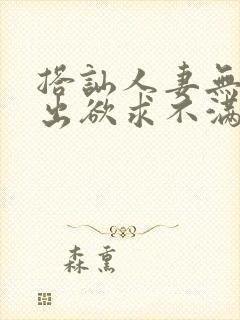 搭訕人妻無
出欲求不滿
森熏